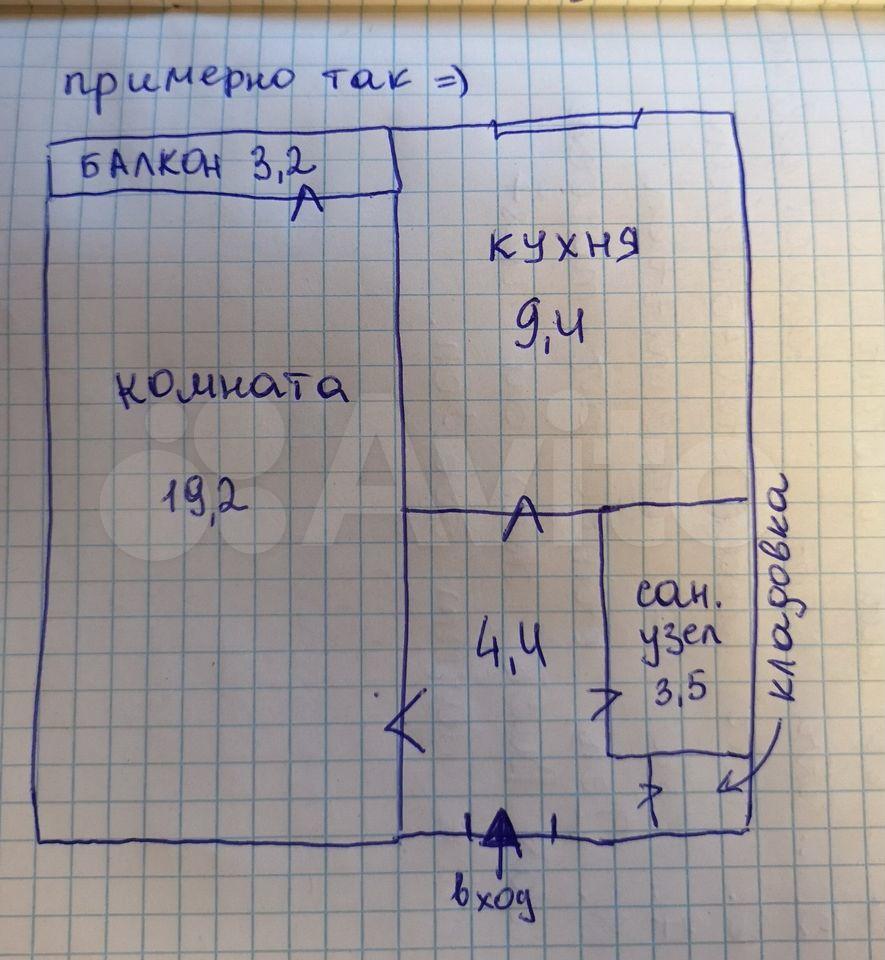 примерно так =)
БАЛКОН 3,2
кухня
9,4
комната
19,2
Avito
сан.
узел
3,5
4,4
кладовка
вход